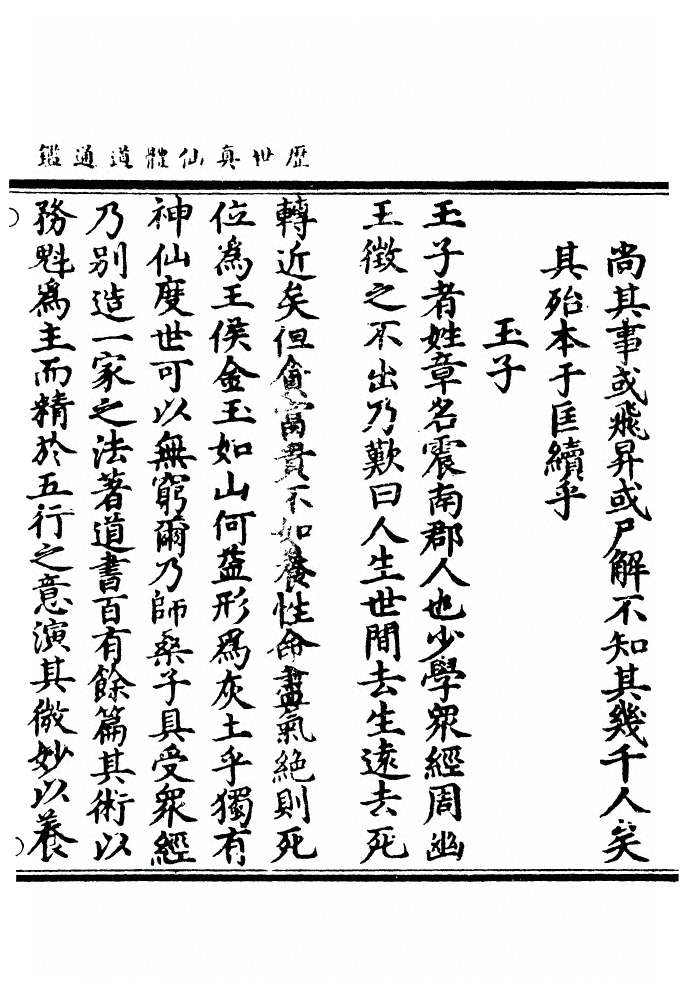 歷世真仙體道通鑑
尚其事或飛昇或尸解不知其幾千人矣
其殆本于匡續乎
玉子
玉子者姓章名震南郡人也少學衆經周幽
王徵之不出乃歎曰人生世間去生遠去死
轉近矣但貪富貴不如養性命盡氣絶則死
位爲王侯金玉如山何益形爲灰土乎獨有
神仙度世可以無窮爾乃師桑子具受衆經
乃别造一家之法著道書百有餘篇其術以
務魁爲主而精於五行之意演其微妙以養